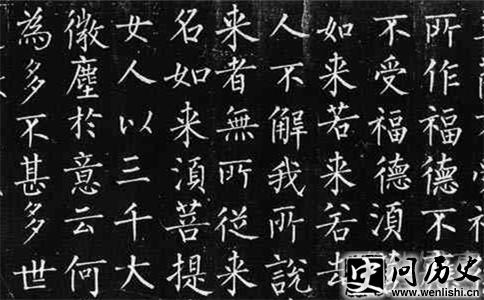 所作福德不
不受福德須
如来若来若去
人不解我所說
来者無所從来
名如来須菩提
女人以三千大
微塵於意云何
為多不甚多世
问历史
www.wenlishi.cn